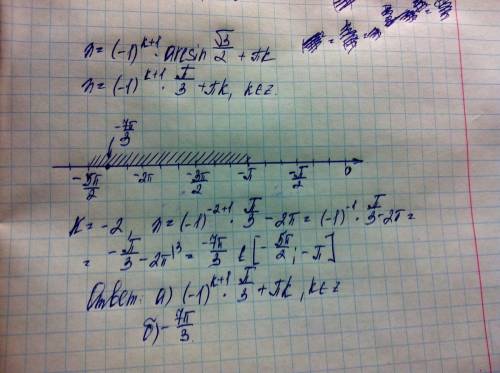 x = (-1)^{k+1} · arcsin √3/2 + πk
x = (-1)^{k+1} · π/3 + πk, k∈z.
-7π/3
-5π/2 -2π -3π/2 -π -π/2 0
K = -2, x = (-1)^{-2+1} · π/3 - 2π = (-1)^{-1} · π/3 - 2π =
= -π/3 - 2π^{|3} = -7π/3 ∈ [-5π/2; -π]
Ответ: а) (-1)^{k+1} · π/3 + πk, k∈z
б) -7π/3.